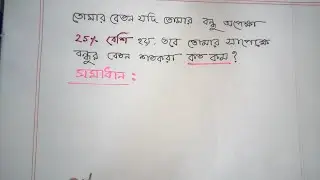 তোমার বেতন যদি তোমার বন্ধু অপেক্ষা
25% বেশি হয়, তবে তোমার সাপেক্ষে
বন্ধুর বেতন শতকরা কত কম?
সমাধান: